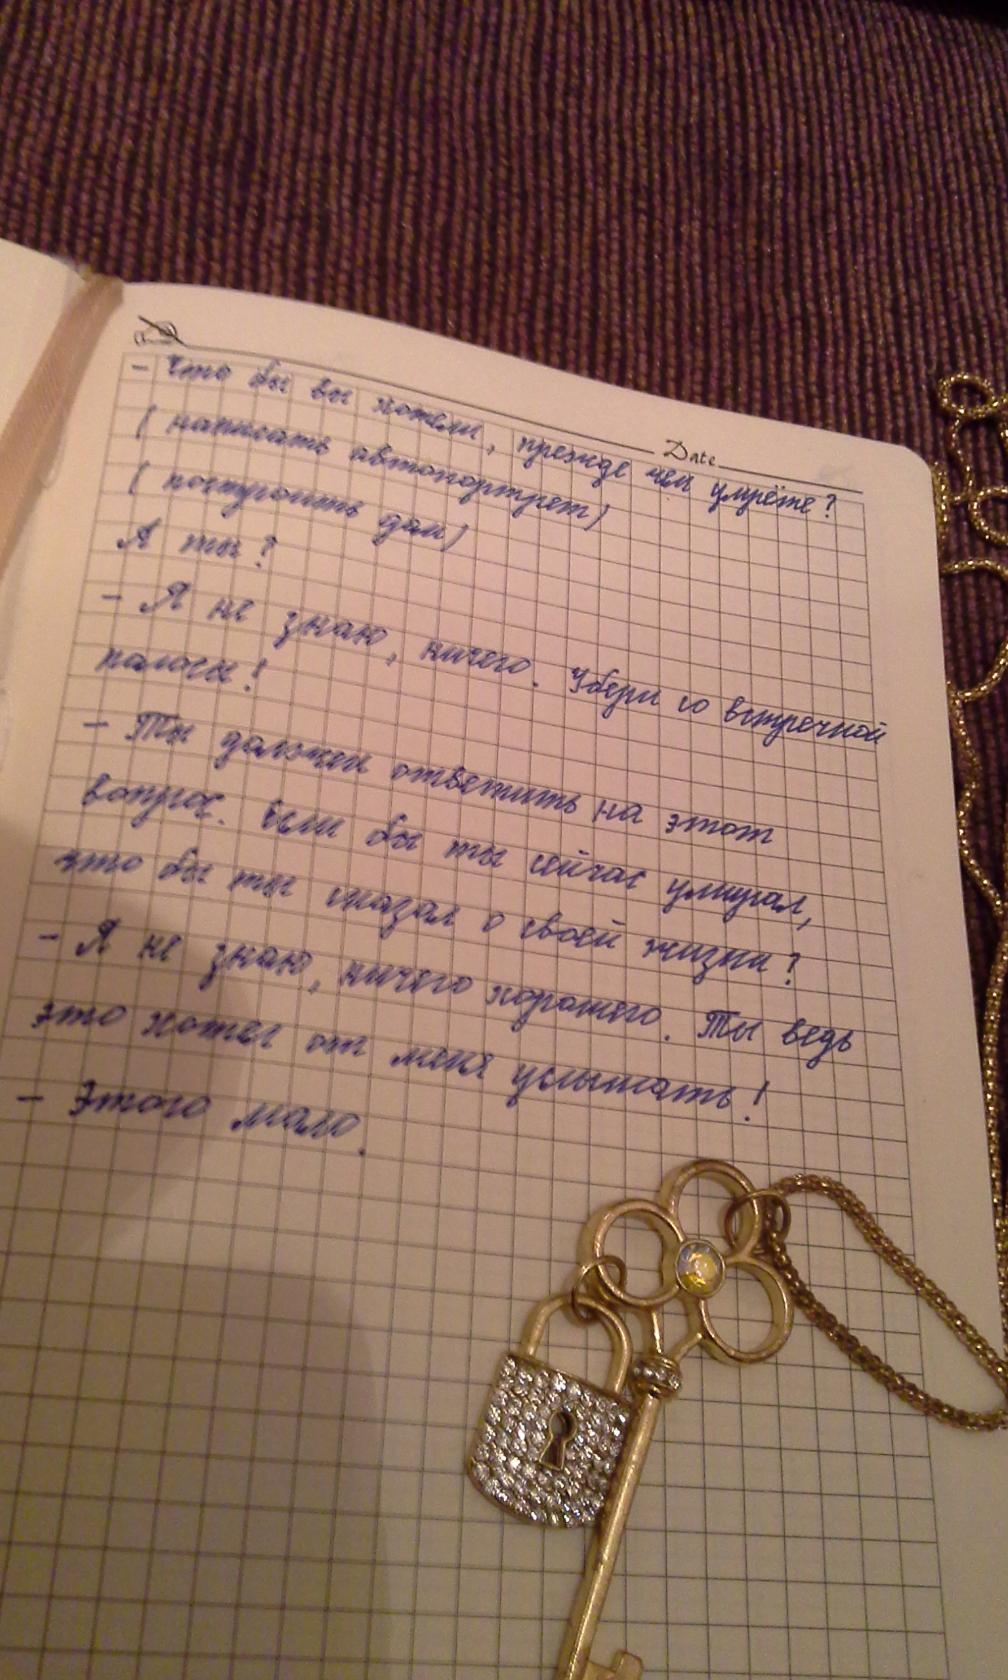 Date
- Что бы вы хотели, прежде чем умрёте?
( написать автопортрет)
( построить дом)
А ты?
- Я не знаю, ничего. Убери со встречной
полосы!
- Ты должен ответить на этот
вопрос. Если бы ты сейчас умирал,
что бы ты сказал о своей жизни?
- Я не знаю, ничего хорошего. Ты ведь
это хотел от меня услышать!
- Этого мало.